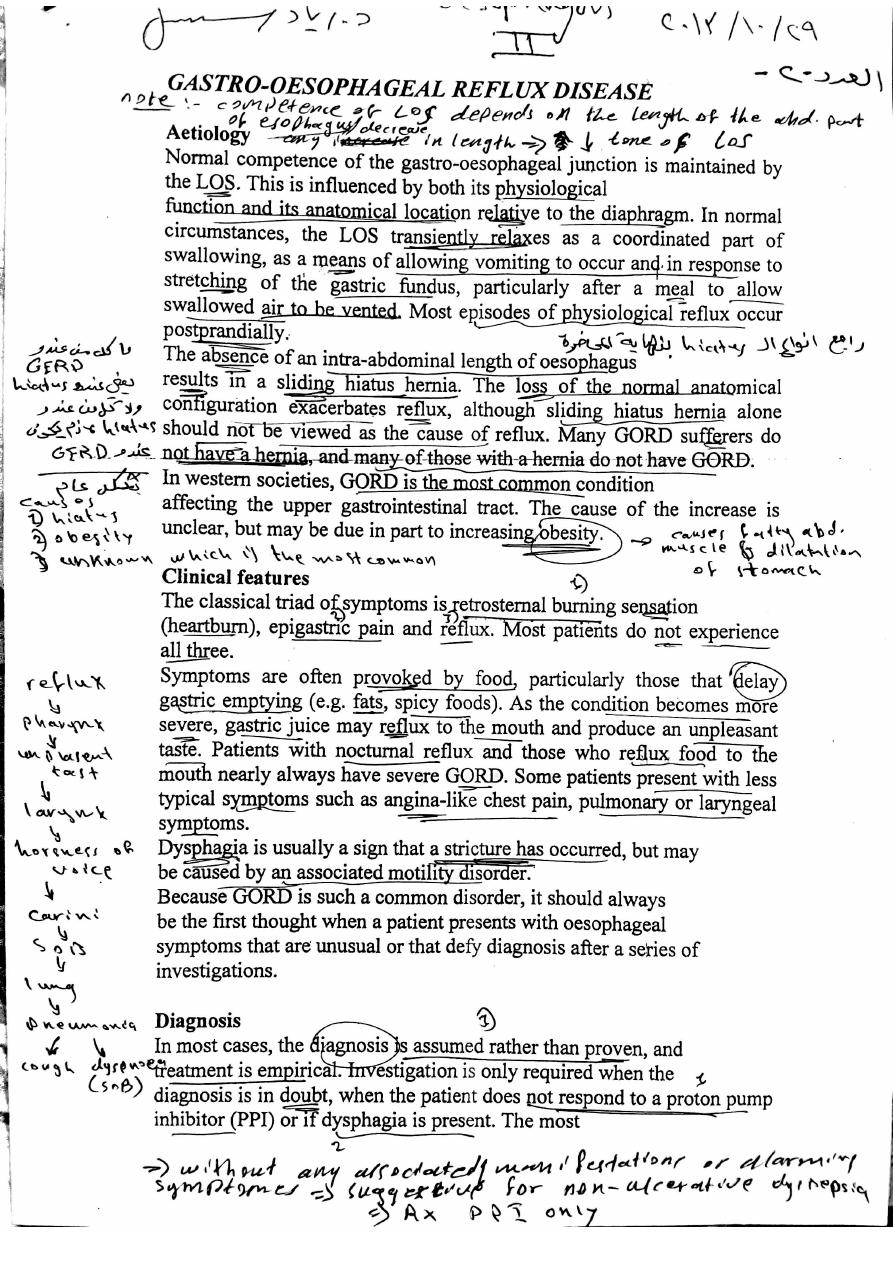 II
٢٠١٢/١٠/٢٩
GASTRO-OESOPHAGEAL REFLUX DISEASE
note :- competence of LOS depends on the length of the abd. part
of esophagus / decrease
Aetiology in length => ↓ tone of LOS
Normal competence of the gastro-oesophageal junction is maintained by
the LOS. This is influenced by both its physiological
function and its anatomical location relative to the diaphragm. In normal
circumstances, the LOS transiently relaxes as a coordinated part of
swallowing, as a means of allowing vomiting to occur and in response to
stretching of the gastric fundus, particularly after a meal to allow
swallowed air to be vented. Most episodes of physiological reflux occur
postprandially.
راجع انواع الـ hiatus
The absence of an intra-abdominal length of oesophagus
results in a sliding hiatus hernia. The loss of the normal anatomical
configuration exacerbates reflux, although sliding hiatus hernia alone
should not be viewed as the cause of reflux. Many GORD sufferers do
not have a hernia, and many of those with a hernia do not have GORD.
GERD
hiatus
hiatus
GERD
In western societies, GORD is the most common condition
affecting the upper gastrointestinal tract. The cause of the increase is
unclear, but may be due in part to increasing obesity.
بشكل عام
causes
1) hiatus
2) obesity
3) unknown which is the most common
→ causes fatty abd.
muscle & dilatation
of stomach
Clinical features
The classical triad of symptoms is retrosternal burning sensation
(heartburn), epigastric pain and reflux. Most patients do not experience
all three.
Symptoms are often provoked by food, particularly those that delay
gastric emptying (e.g. fats, spicy foods). As the condition becomes more
severe, gastric juice may reflux to the mouth and produce an unpleasant
taste. Patients with nocturnal reflux and those who reflux food to the
mouth nearly always have severe GORD. Some patients present with less
typical symptoms such as angina-like chest pain, pulmonary or laryngeal
symptoms.
Dysphagia is usually a sign that a stricture has occurred, but may
be caused by an associated motility disorder.
Because GORD is such a common disorder, it should always
be the first thought when a patient presents with oesophageal
symptoms that are unusual or that defy diagnosis after a series of
investigations.
reflux
↓
pharynx
↓
unplasent
tast
↓
larynx
↓
horsness of
voice
↓
carini
↓
SOB
↓
lung
↓
pneumonia
cough
(SOB)
Diagnosis
In most cases, the diagnosis is assumed rather than proven, and
treatment is empirical. Investigation is only required when the
diagnosis is in doubt, when the patient does not respond to a proton pump
inhibitor (PPI) or if dysphagia is present. The most
=> without any associated manifestations or alarming
symptomes => suggestive for non-ulcerative dyspepsia
=> Ax PPI only